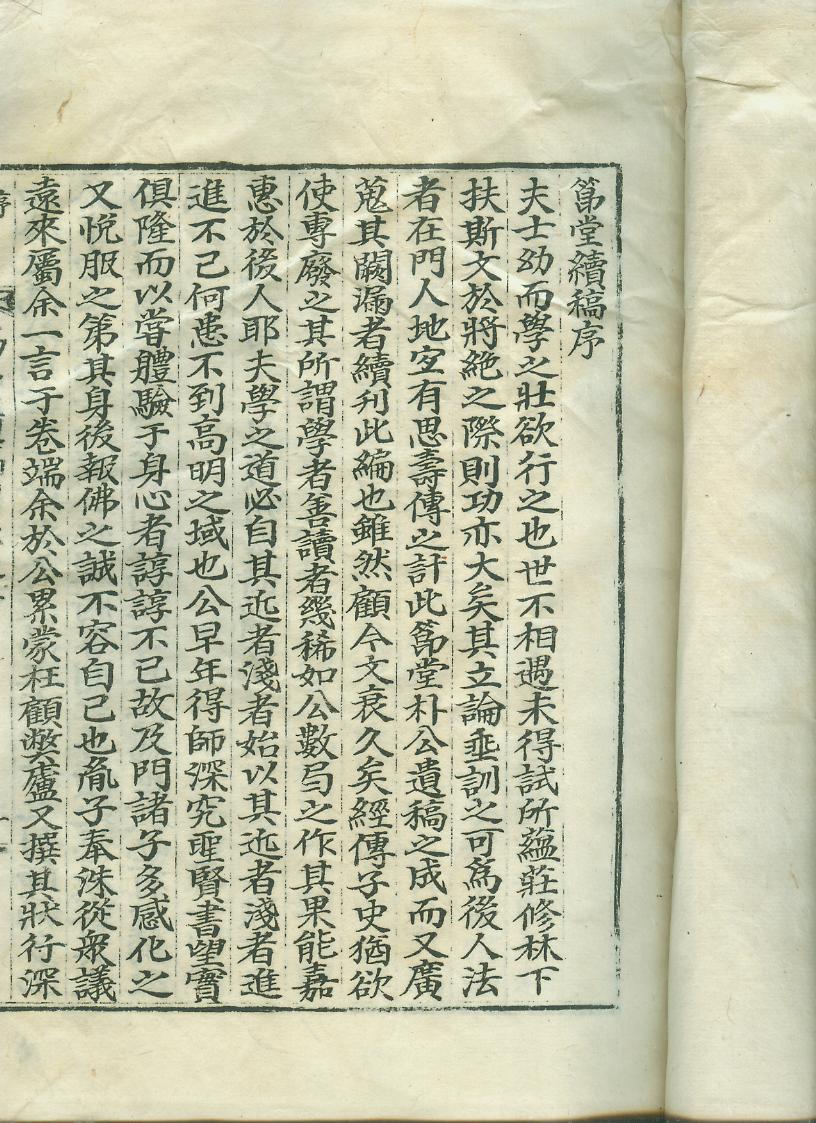 篅堂續稿序
夫士幼而學之壯欲行之也世不相遇未得試所蘊莊修林下
扶斯文於將絶之際則功亦大矣其立論垂訓之可爲後人法
者在門人地宜有思壽傳之計此篅堂朴公遺稿之成而又廣
蒐其闕漏者續刋此編也雖然顧今文衰久矣經傳子史猶欲
使專廢之其所謂學者善讀者幾稀如公數弓之作其果能嘉
惠於後人耶夫學之道必自其近者淺者始以其近者淺者進
進不已何患不到高明之域也公早年得師深究聖賢書望實
俱隆而以甞體驗于身心者諄諄不已故及門諸子多感化之
又悦服之第其身後報佛之誠不容自已也胤子奉洙從衆議
遠來屬余一言于卷端余於公累蒙枉顧弊廬又撰其狀行深
序